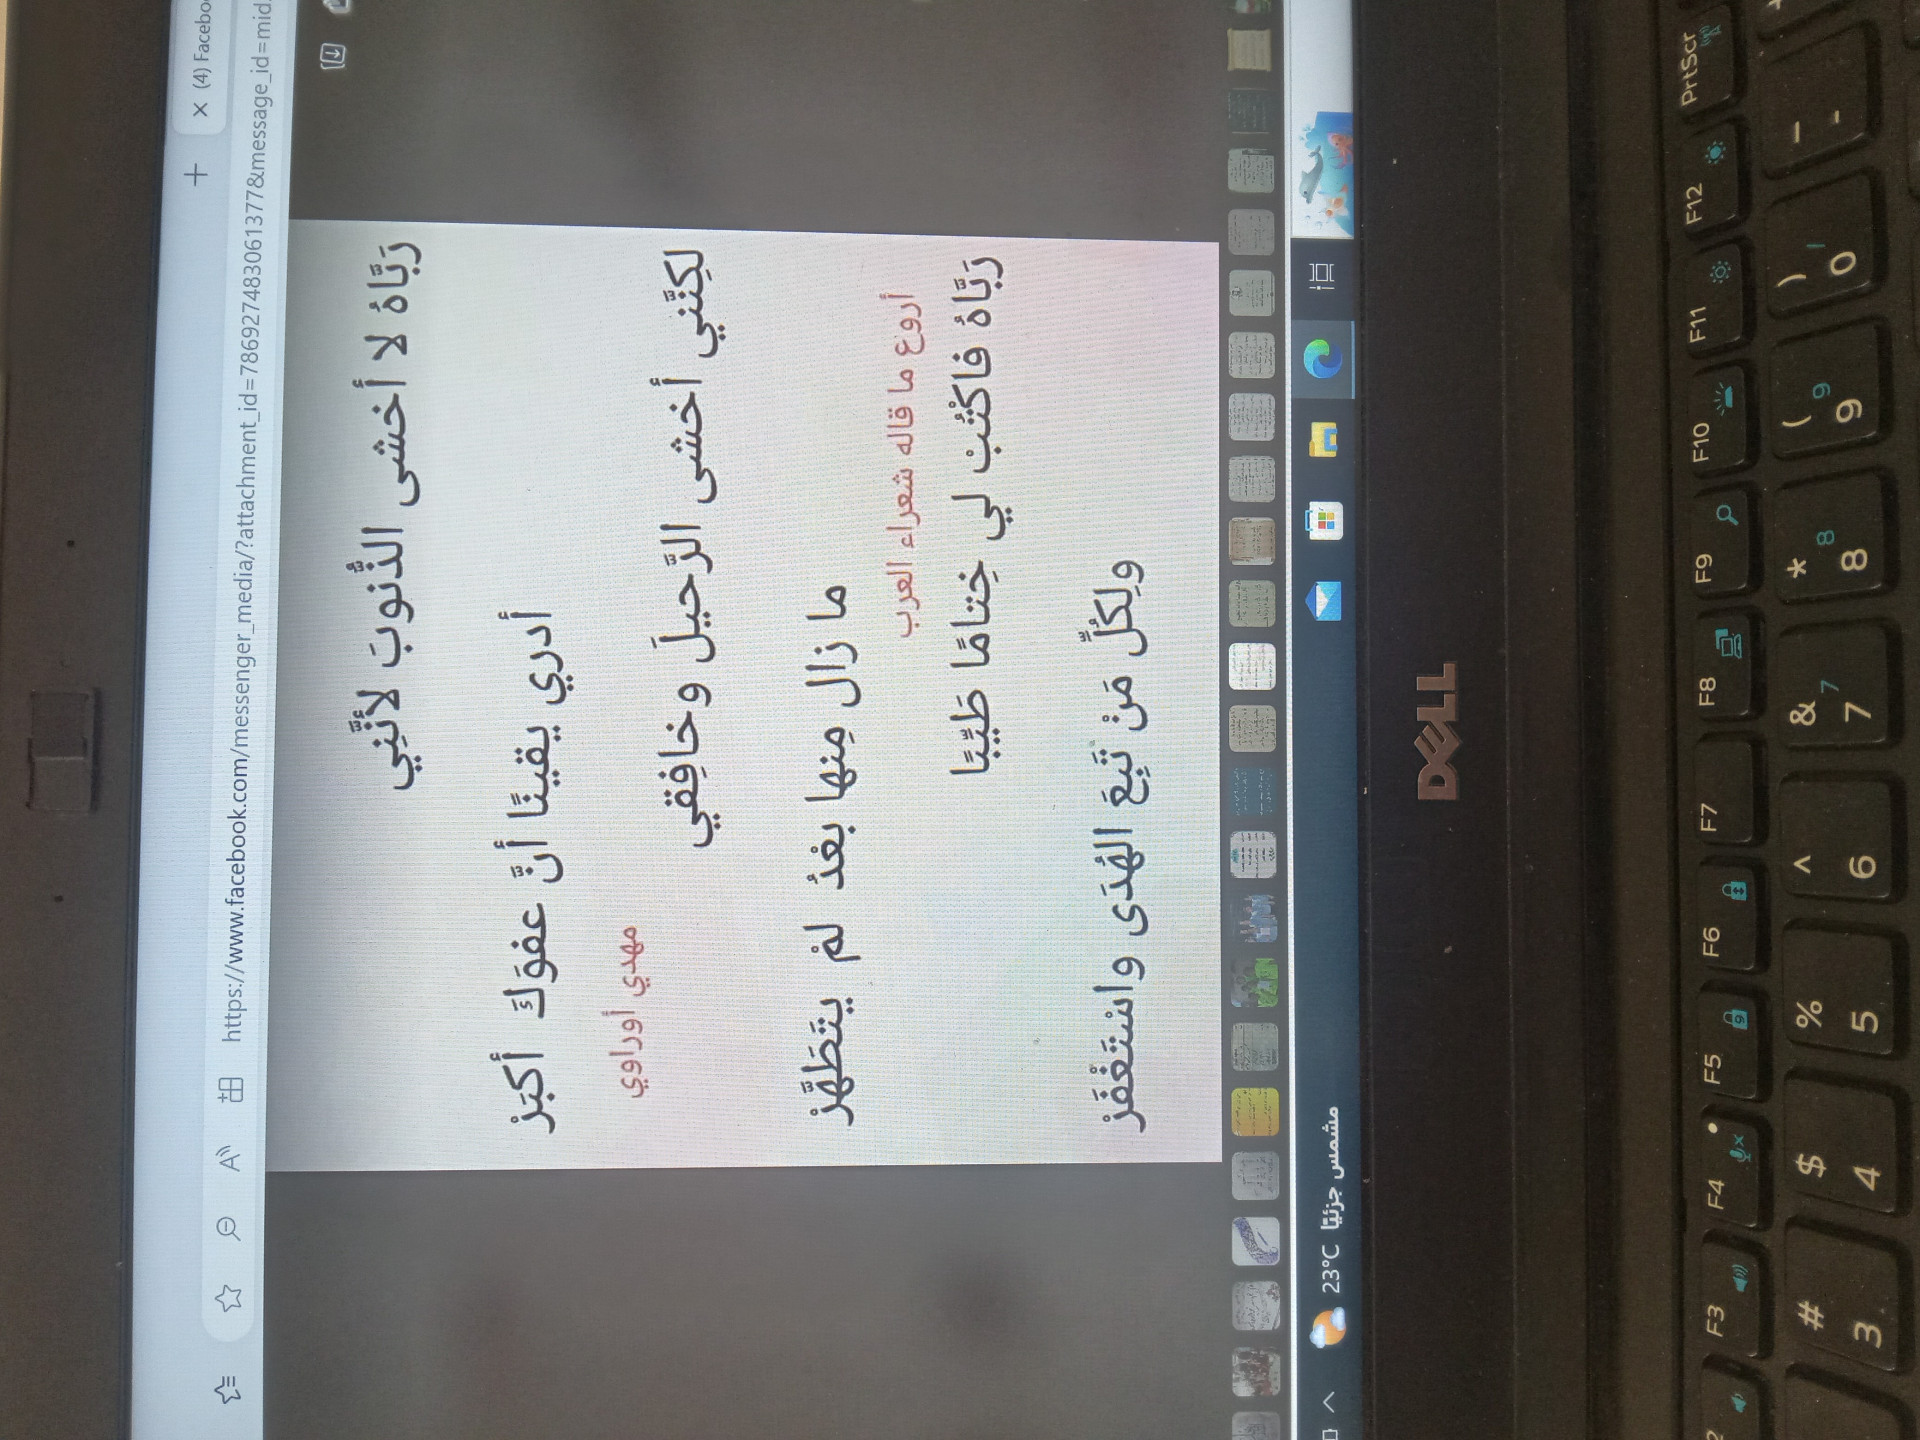 (4) Facebo
https://www.facebook.com/messenger_media/?attachment_id=786927483061377&message_id=mid.
رَبَّاهُ لا أخشى الذُّنوبَ لأنَّنِي
أدري يقينًا أنَّ عفوَكَ أكبَرْ
مهدي أوراوي
لكِنَّني أخشى الرَّحيلَ وخافِقي
ما زال مِنها بعْدُ لمْ يتَطَهَّرْ
أروع ما قاله شعراء العرب
رَبَّاهُ فاكْتُبْ لي خِتامًا طَيِّبًا
ولِكُلِّ مَنْ تَبِعَ الهُدَى واسْتَغْفَرْ
23°C مشمس جزئيًا
DELL
F3 F4 F5 F6 F7 F8 F9 F10 F11 F12 PrtScr
# $ % ^ & * ( ) _
3 4 5 6 7 7 8 8 9 9 0 / -